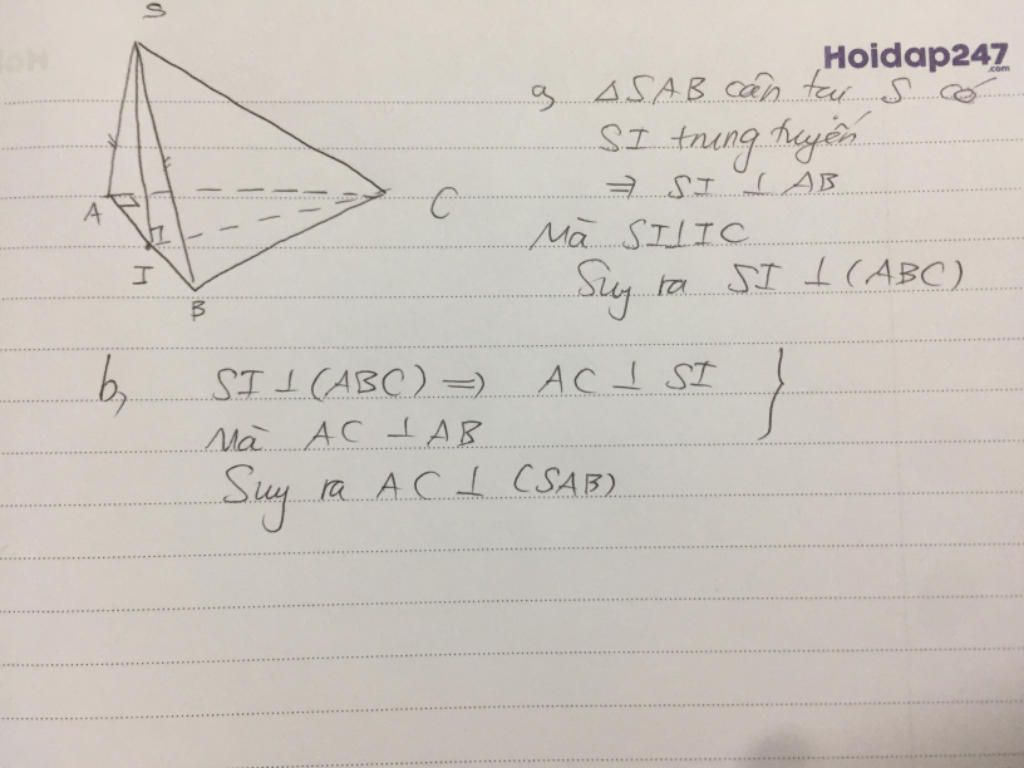 S
Hoidap247
.com
a, △SAB cân tại S có
SI trung tuyến
⇒ SI ⊥ AB
A
C
Mà SI⊥IC
I
Suy ra SI ⊥ (ABC)
B
b, SI ⊥ (ABC) ⇒ AC ⊥ SI }
Mà AC ⊥ AB
Suy ra AC ⊥ (SAB)